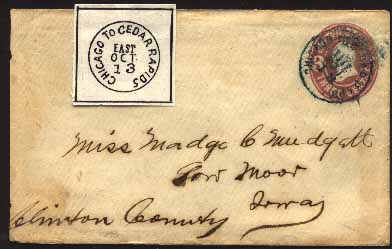 CHICAGO TO CEDAR RAPIDS
EAST
OCT
13
Miss Madge C Mudgett
Low Moor
Iowa
Clinton County